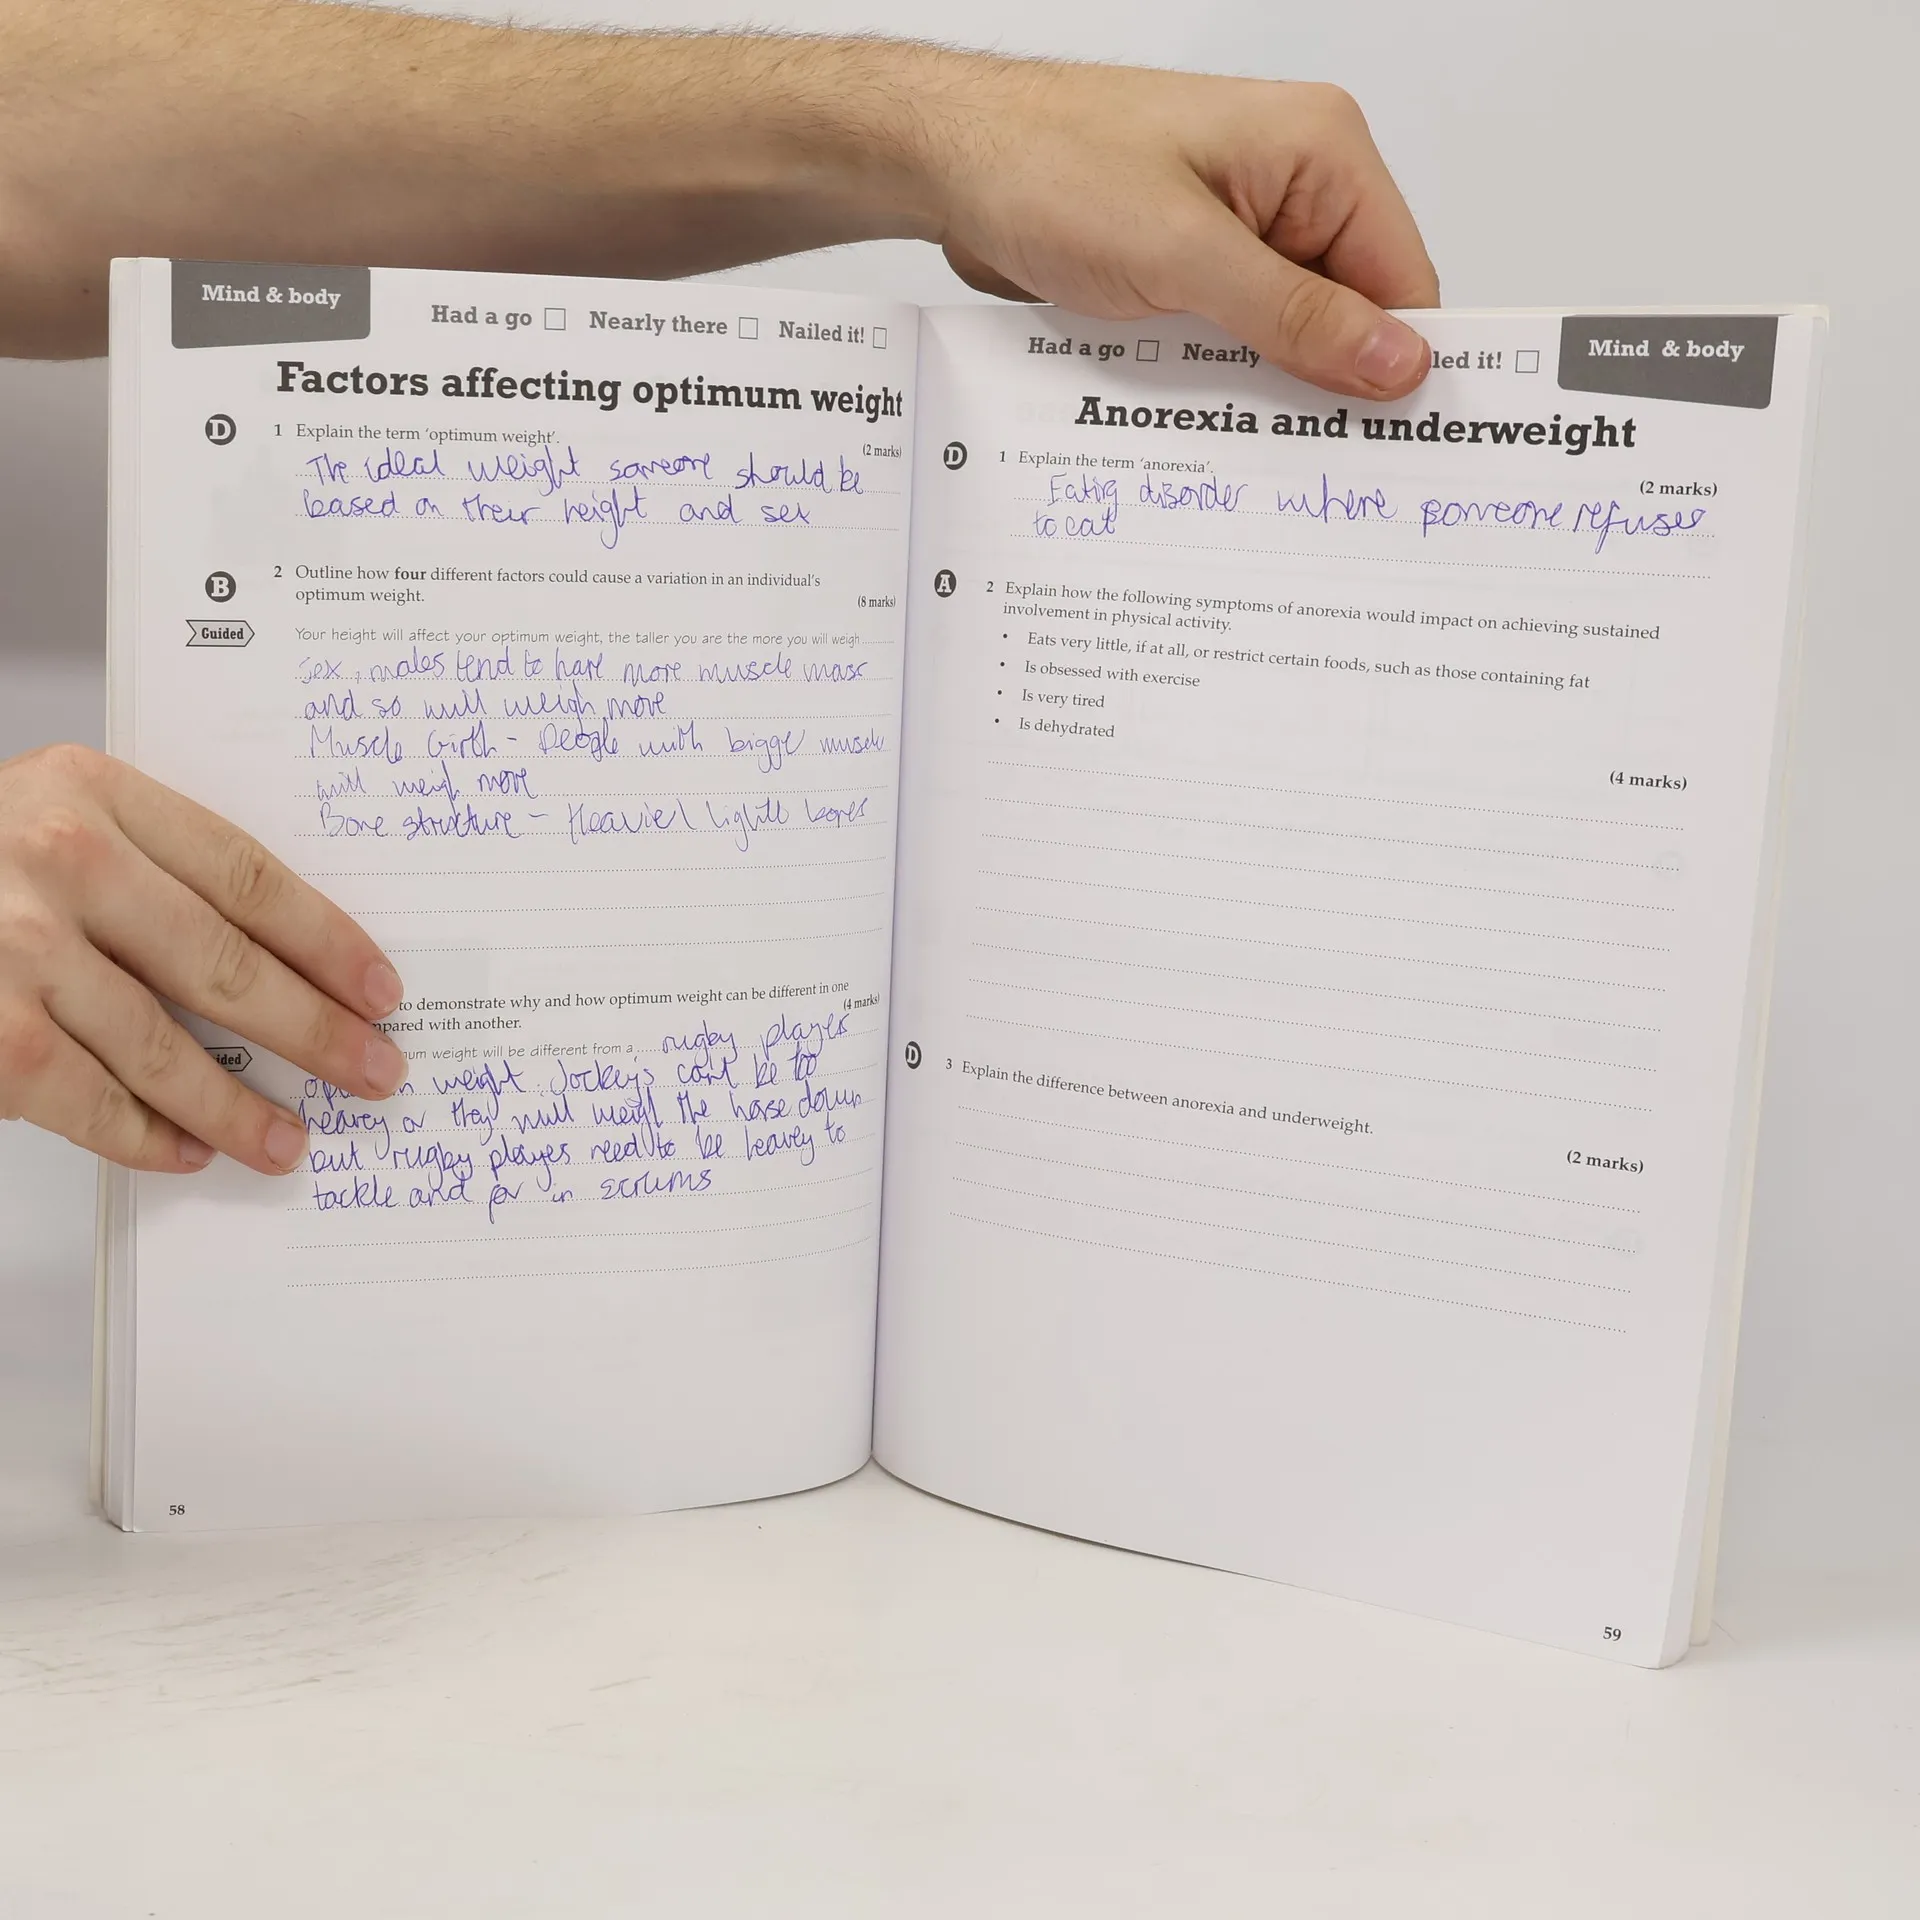 Mind & body
Had a go Nearly there Nailed it!
Factors affecting optimum weight
D
1 Explain the term 'optimum weight'.
(2 marks)
The ideal weight someone should be
based on their height and sex
B
2 Outline how four different factors could cause a variation in an individual's
optimum weight.
(8 marks)
Guided
Your height will affect your optimum weight, the taller you are the more you will weigh
Sex, males tend to have more muscle mass
and so will weigh more
Muscle Girth - People with bigger muscle
will weigh more
Bone structure - Heavier/ lighter bones
to demonstrate why and how optimum weight can be different in one
(4 marks)
mpared with another.
ided
num weight will be different from a rugby players
weight. Jockeys can't be to
heavey or they will weigh the horse down
but rugby players need to be heavey to
tackle and for in scrums
58
Had a go Nearly led it!
Mind & body
Anorexia and underweight
D
1 Explain the term 'anorexia'.
(2 marks)
Eating disorder where someone refuses
to eat
A
2 Explain how the following symptoms of anorexia would impact on achieving sustained
involvement in physical activity.
• Eats very little, if at all, or restrict certain foods, such as those containing fat
• Is obsessed with exercise
• Is very tired
• Is dehydrated
(4 marks)
D
3 Explain the difference between anorexia and underweight.
(2 marks)
59